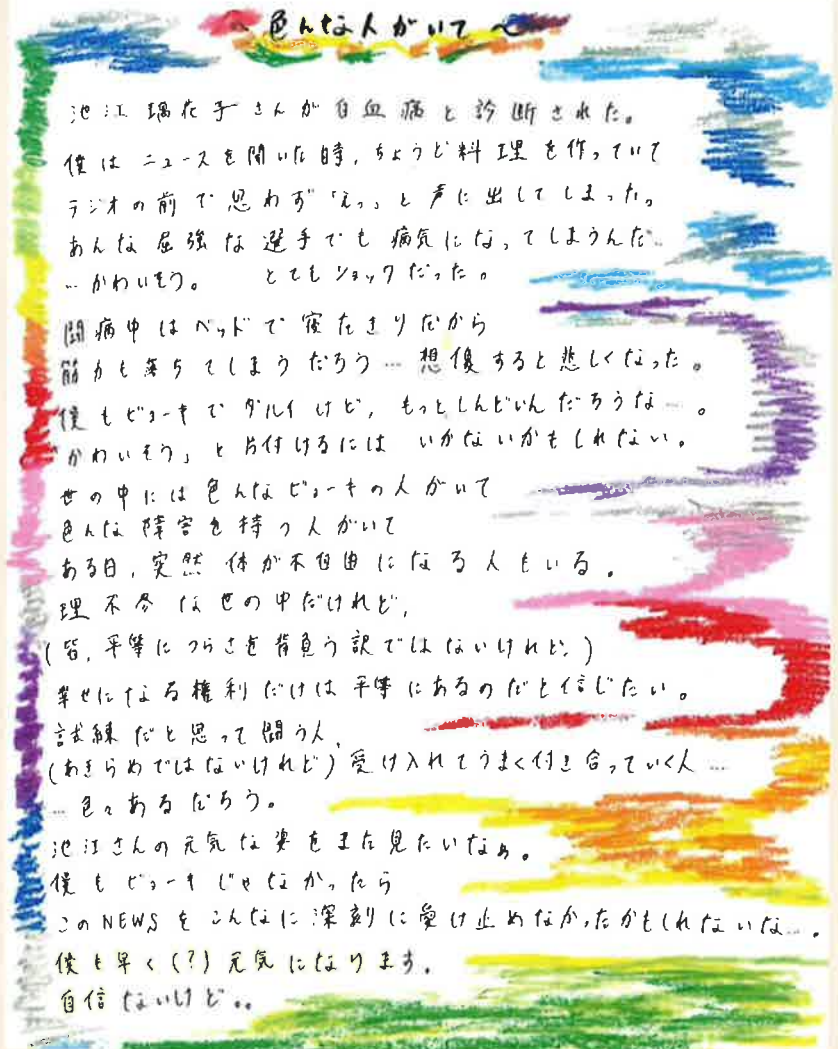 ～色んな人がいて～
池江璃花子さんが白血病と診断された。
僕はニュースを聞いた時、ちょうど料理を作っていて
ラジオの前で思わず「えっ」と声に出してしまった。
あんな屈強な選手でも病気になってしまうんだ…
…かわいそう。 とてもショックだった。
闘病中はベッドで寝たきりだから
筋力も落ちてしまうだろう…想像すると悲しくなった。
僕もビョーキでダルイけど、もっとしんどいんだろうな…。
「かわいそう」と片付けるにはいかないかもしれない。
世の中には色んなビョーキの人がいて
色んな障害を持つ人がいて
ある日、突然体が不自由になる人もいる。
理不尽な世の中だけれど、
(皆、平等につらさを背負う訳ではないけれど、)
幸せになる権利だけは平等にあるのだと信じたい。
試練だと思って闘う人、
(あきらめではないけれど)受け入れてうまく付き合っていく人…
…色々あるだろう。
池江さんの元気な姿をまた見たいなぁ。
僕もビョーキじゃなかったら
このNEWSをこんなに深刻に受け止めなかったかもしれないな…。
僕も早く(?)元気になります。
自信ないけど。。